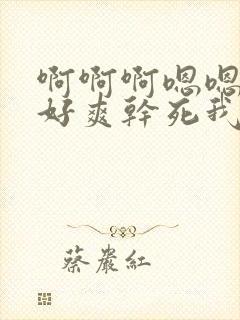 啊啊啊嗯嗯
好爽幹死我
蔡巖紅